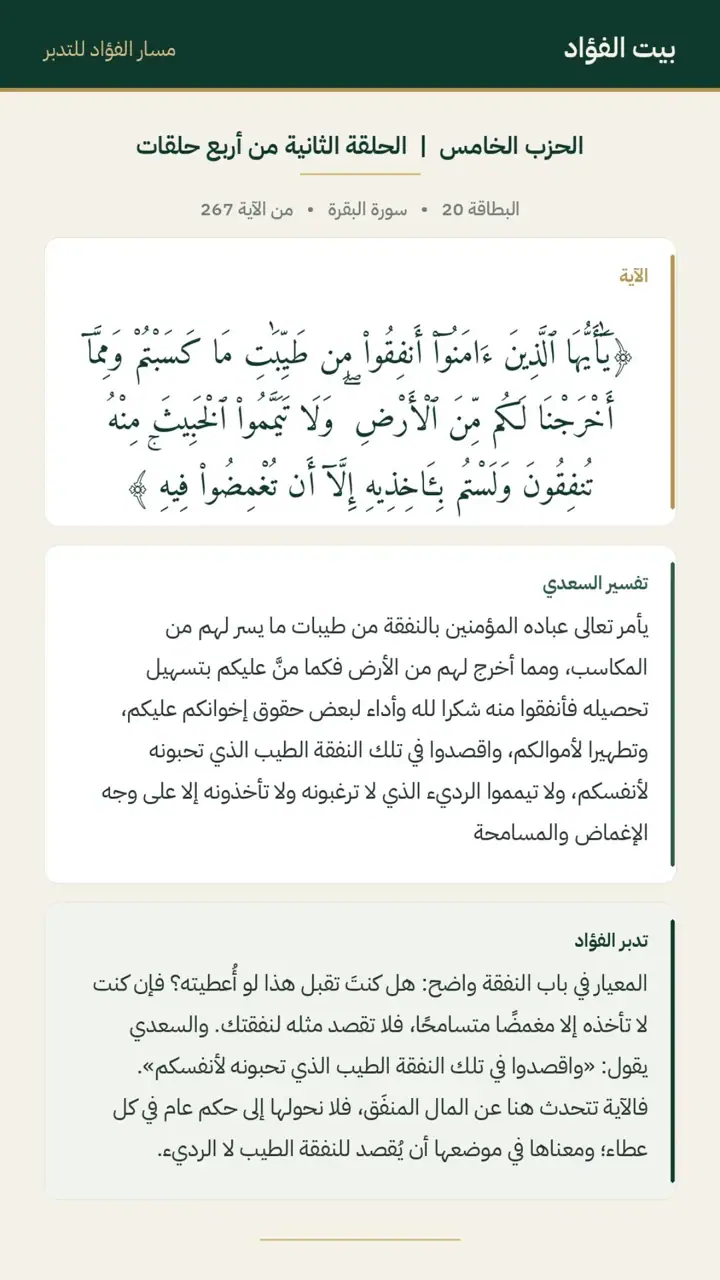 بيت الفؤاد
مسار الفؤاد للتدبر
الحزب الخامس | الحلقة الثانية من أربع حلقات
البطاقة 20 • سورة البقرة • من الآية 267
الآية
﴿يَٰٓأَيُّهَا ٱلَّذِينَ ءَامَنُوٓا۟ أَنفِقُوا۟ مِن طَيِّبَٰتِ مَا كَسَبْتُمْ وَمِمَّآ
أَخْرَجْنَا لَكُم مِّنَ ٱلْأَرْضِ ۖ وَلَا تَيَمَّمُوا۟ ٱلْخَبِيثَ مِنْهُ
تُنفِقُونَ وَلَسْتُم بِـَٔاخِذِيهِ إِلَّآ أَن تُغْمِضُوا۟ فِيهِ ۚ﴾
تفسير السعدي
يأمر تعالى عباده المؤمنين بالنفقة من طيبات ما يسر لهم من
المكاسب، ومما أخرج لهم من الأرض فكما منَّ عليكم بتسهيل
تحصيله فأنفقوا منه شكرا لله وأداء لبعض حقوق إخوانكم عليكم،
وتطهيرا لأموالكم، واقصدوا في تلك النفقة الطيب الذي تحبونه
لأنفسكم، ولا تيمموا الرديء الذي لا ترغبونه ولا تأخذونه إلا على وجه
الإغماض والمسامحة
تدبر الفؤاد
المعيار في باب النفقة واضح: هل كنتَ تقبل هذا لو أُعطيته؟ فإن كنت
لا تأخذه إلا مغمضًا متسامحًا، فلا تقصد مثله لنفقتك. والسعدي
يقول: «واقصدوا في تلك النفقة الطيب الذي تحبونه لأنفسكم».
فالآية تتحدث هنا عن المال المنفَق، فلا نحولها إلى حكم عام في كل
عطاء؛ ومعناها في موضعها أن يُقصد للنفقة الطيب لا الرديء.